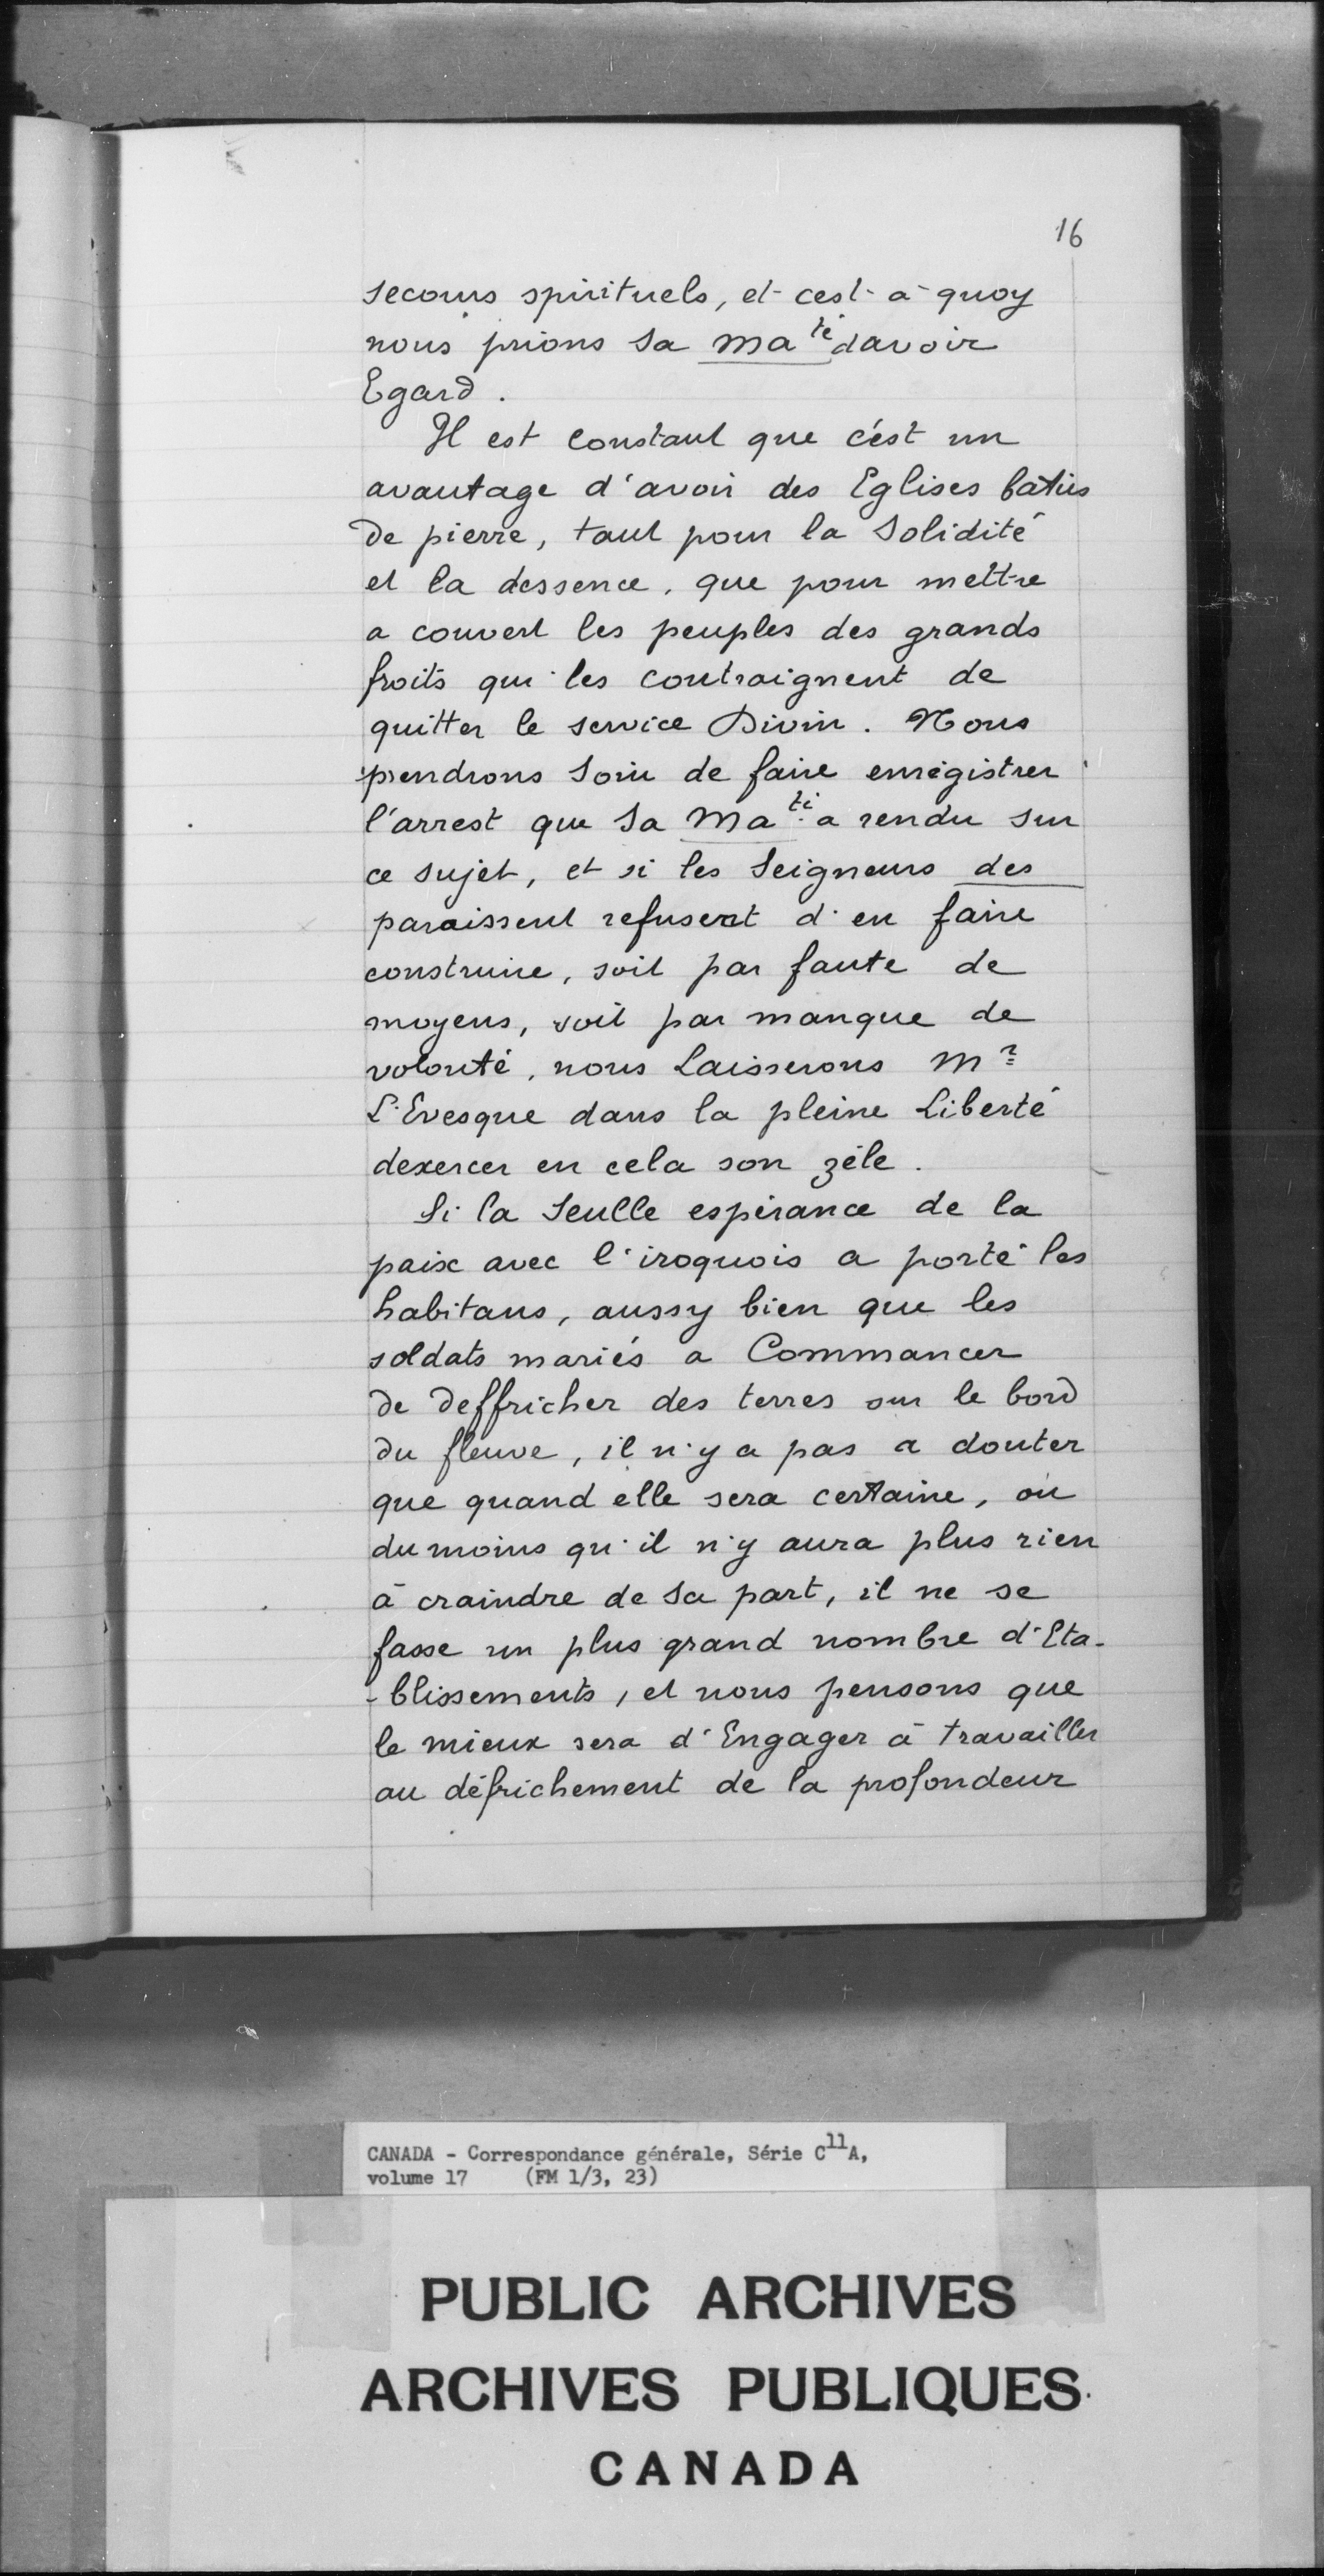 16
secours spirituels, et c'est a quoy
nous prions Sa Ma^té davoir
Egard.
Il est constant que c'est un
avantage d'avoir des Eglises baties
de pierre, tant pour la Solidité
et la dessence, que pour mettre
a couvert les peuples des grands
froits qui les contraignent de
quitter le service Divin. Nous
prendrons Soin de faire enrégistrer
l'arrest que Sa Ma^té a rendu sur
ce sujet, et si les Seigneurs des
paraissent refusent d'en faire
construire, soit par faute de
moyens, soit par manque de
volonté, nous Laisserons M^r
L'Evesque dans la pleine Liberté
dexercer en cela son zèle.
Si la Seulle espérance de la
paix avec l'iroquois a porté les
habitans, aussy bien que les
soldats mariés a Commancer
de deffricher des terres sur le bord
du fleuve, il n'y a pas a douter
que quand elle sera certaine, ou
du moins qu'il n'y aura plus rien
à craindre de Sa part, il ne se
fasse un plus grand nombre d'Eta-
-blissements, et nous pensons que
le mieux sera d'Engager à travailler
au défrichement de la profondeur
CANADA - Correspondance générale, Série C^11A,
volume 17 (FM 1/3, 23)
PUBLIC ARCHIVES
ARCHIVES PUBLIQUES
CANADA